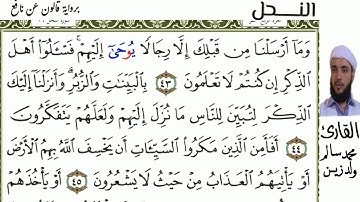 النحل
برواية قالون عن نافع
وَمَا أَرْسَلْنَا مِن قَبْلِكَ إِلَّا رِجَالًا يُوحَىٰ إِلَيْهِمْ فَسْـَٔلُوا أَهْلَ
الذِّكْرِ إِن كُنتُمْ لَا تَعْلَمُونَ ٤٣ بِالْبَيِّنَاتِ وَالزُّبُرِ وَأَنزَلْنَا إِلَيْكَ
الذِّكْرَ لِتُبَيِّنَ لِلنَّاسِ مَا نُزِّلَ إِلَيْهِمْ وَلَعَلَّهُمْ يَتَفَكَّرُونَ
٤٤ أَفَأَمِنَ الَّذِينَ مَكَرُوا السَّيِّـَٔاتِ أَن يَخْسِفَ اللَّهُ بِهِمُ الْأَرْضَ
أَوْ يَأْتِيَهُمُ الْعَذَابُ مِنْ حَيْثُ لَا يَشْعُرُونَ ٤٥ أَوْ يَأْخُذَهُمْ
القارئ
محمد سالم
ولد زين